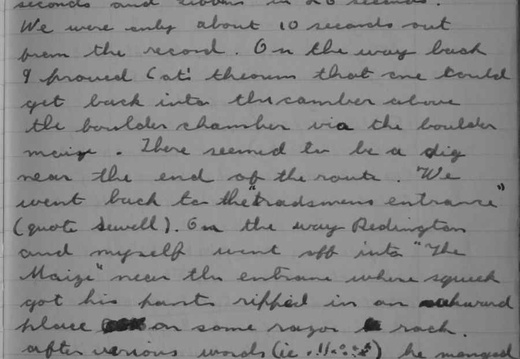 seconds and ribbons in 20 seconds.
We were only about 10 seconds out
from the record. On the way back
I proved Cat's theorum that one could
get back into the camber above
the boulder chamber via the boulder
maize. There seemed to be a dig
near the end of the route. We
went back to the "tradsmens entrance"
(quote Sewell). On the way Redington
and myself went off into "The
Maize" near the entrane where squeek
got his pants ripped in an awkward
place on some razor rock.
after various words (ie .!!°:°*) he manged